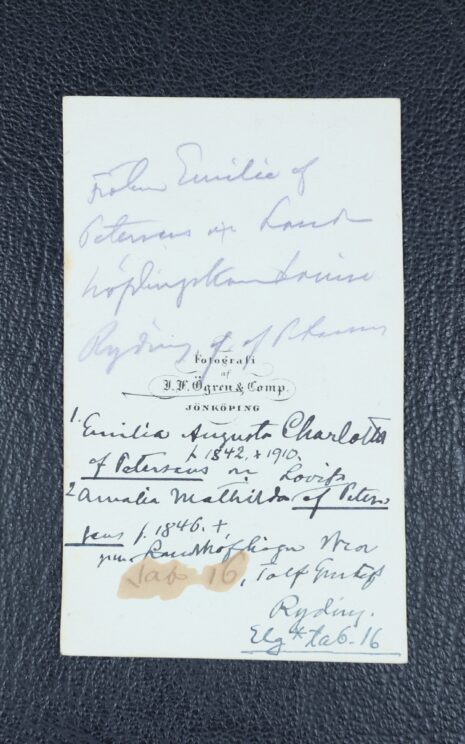 Fröken Emilie af
Petersens och Land-
Ryding f. af Petersens
Fotografi
af
J. F. Ögren & Comp.
JÖNKÖPING
1. Emilia Augusta Charlotta
f. 1842. + 1910.
af Petersens
Lovisa
2 Amalia Mathilda af Peter-
sens f. 1846. +
gm.
Tab 16, Gustaf
Ryding.
Elg* tab. 16